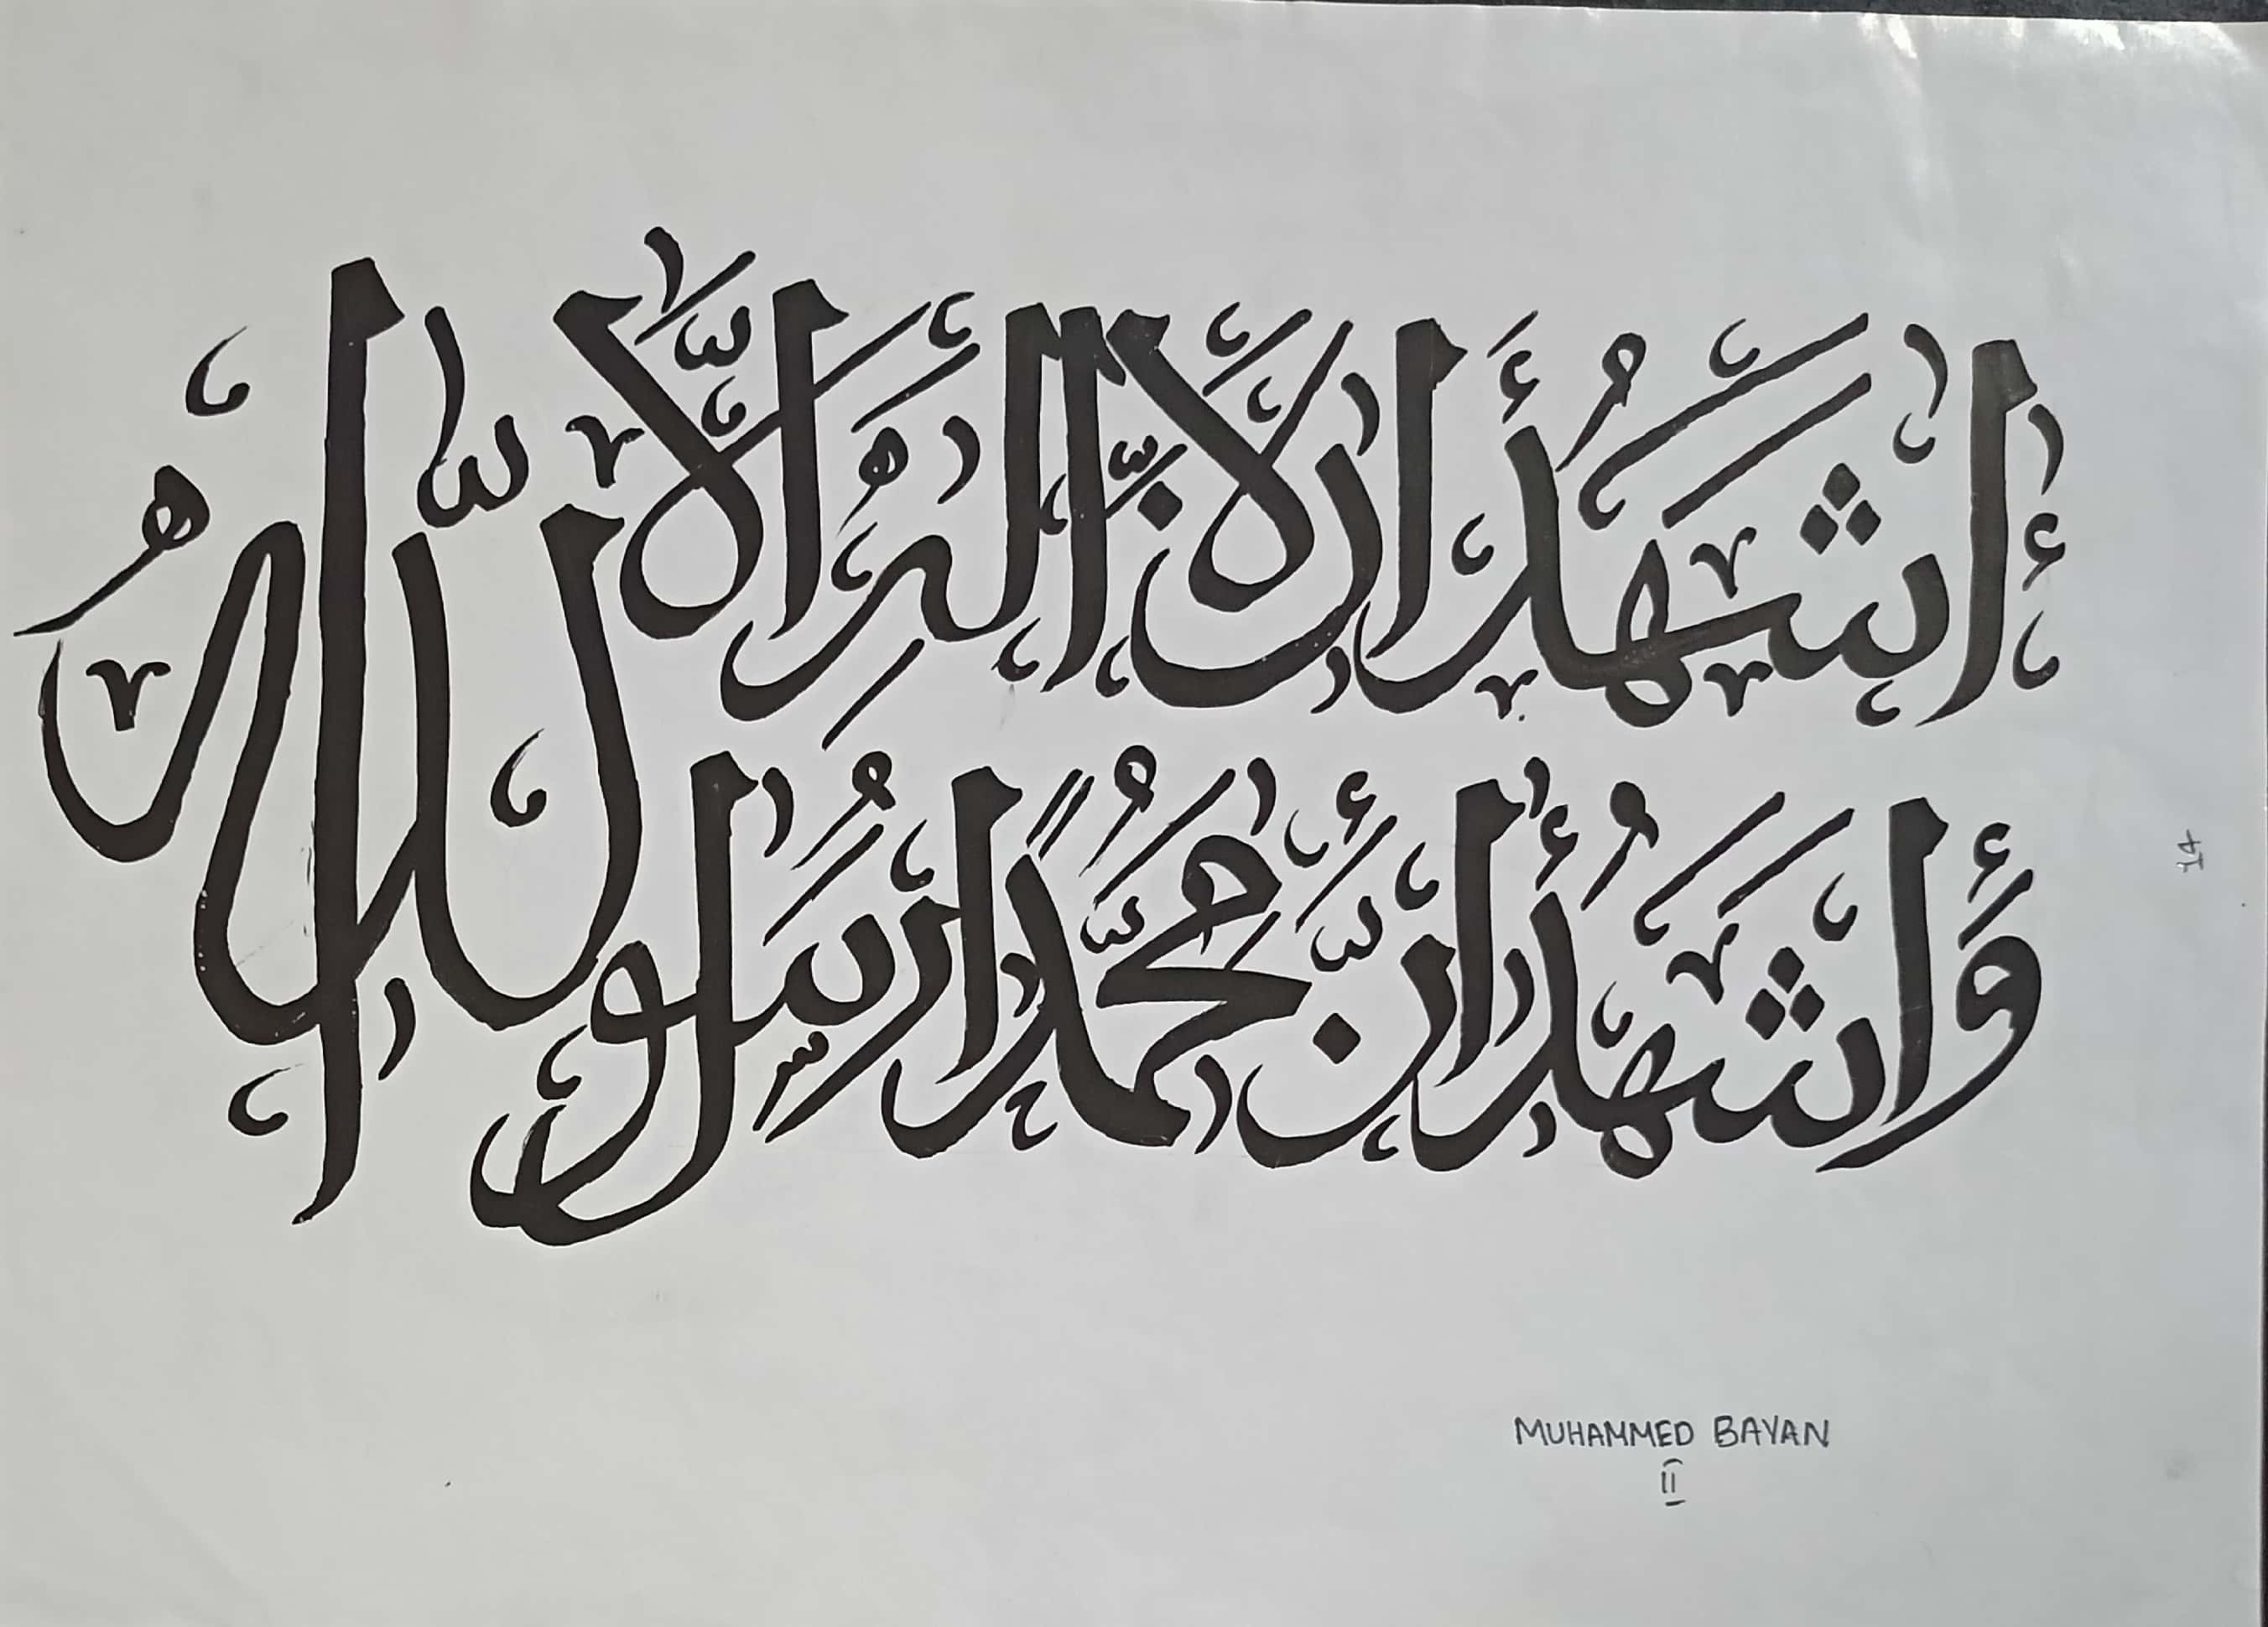 أَشْهَدُ أَنْ لَّا إِلٰهَ إِلَّا اللّٰهُ
وَأَشْهَدُ أَنَّ مُحَمَّدًا رَسُولُ
MUHAMMED BAYAN
II